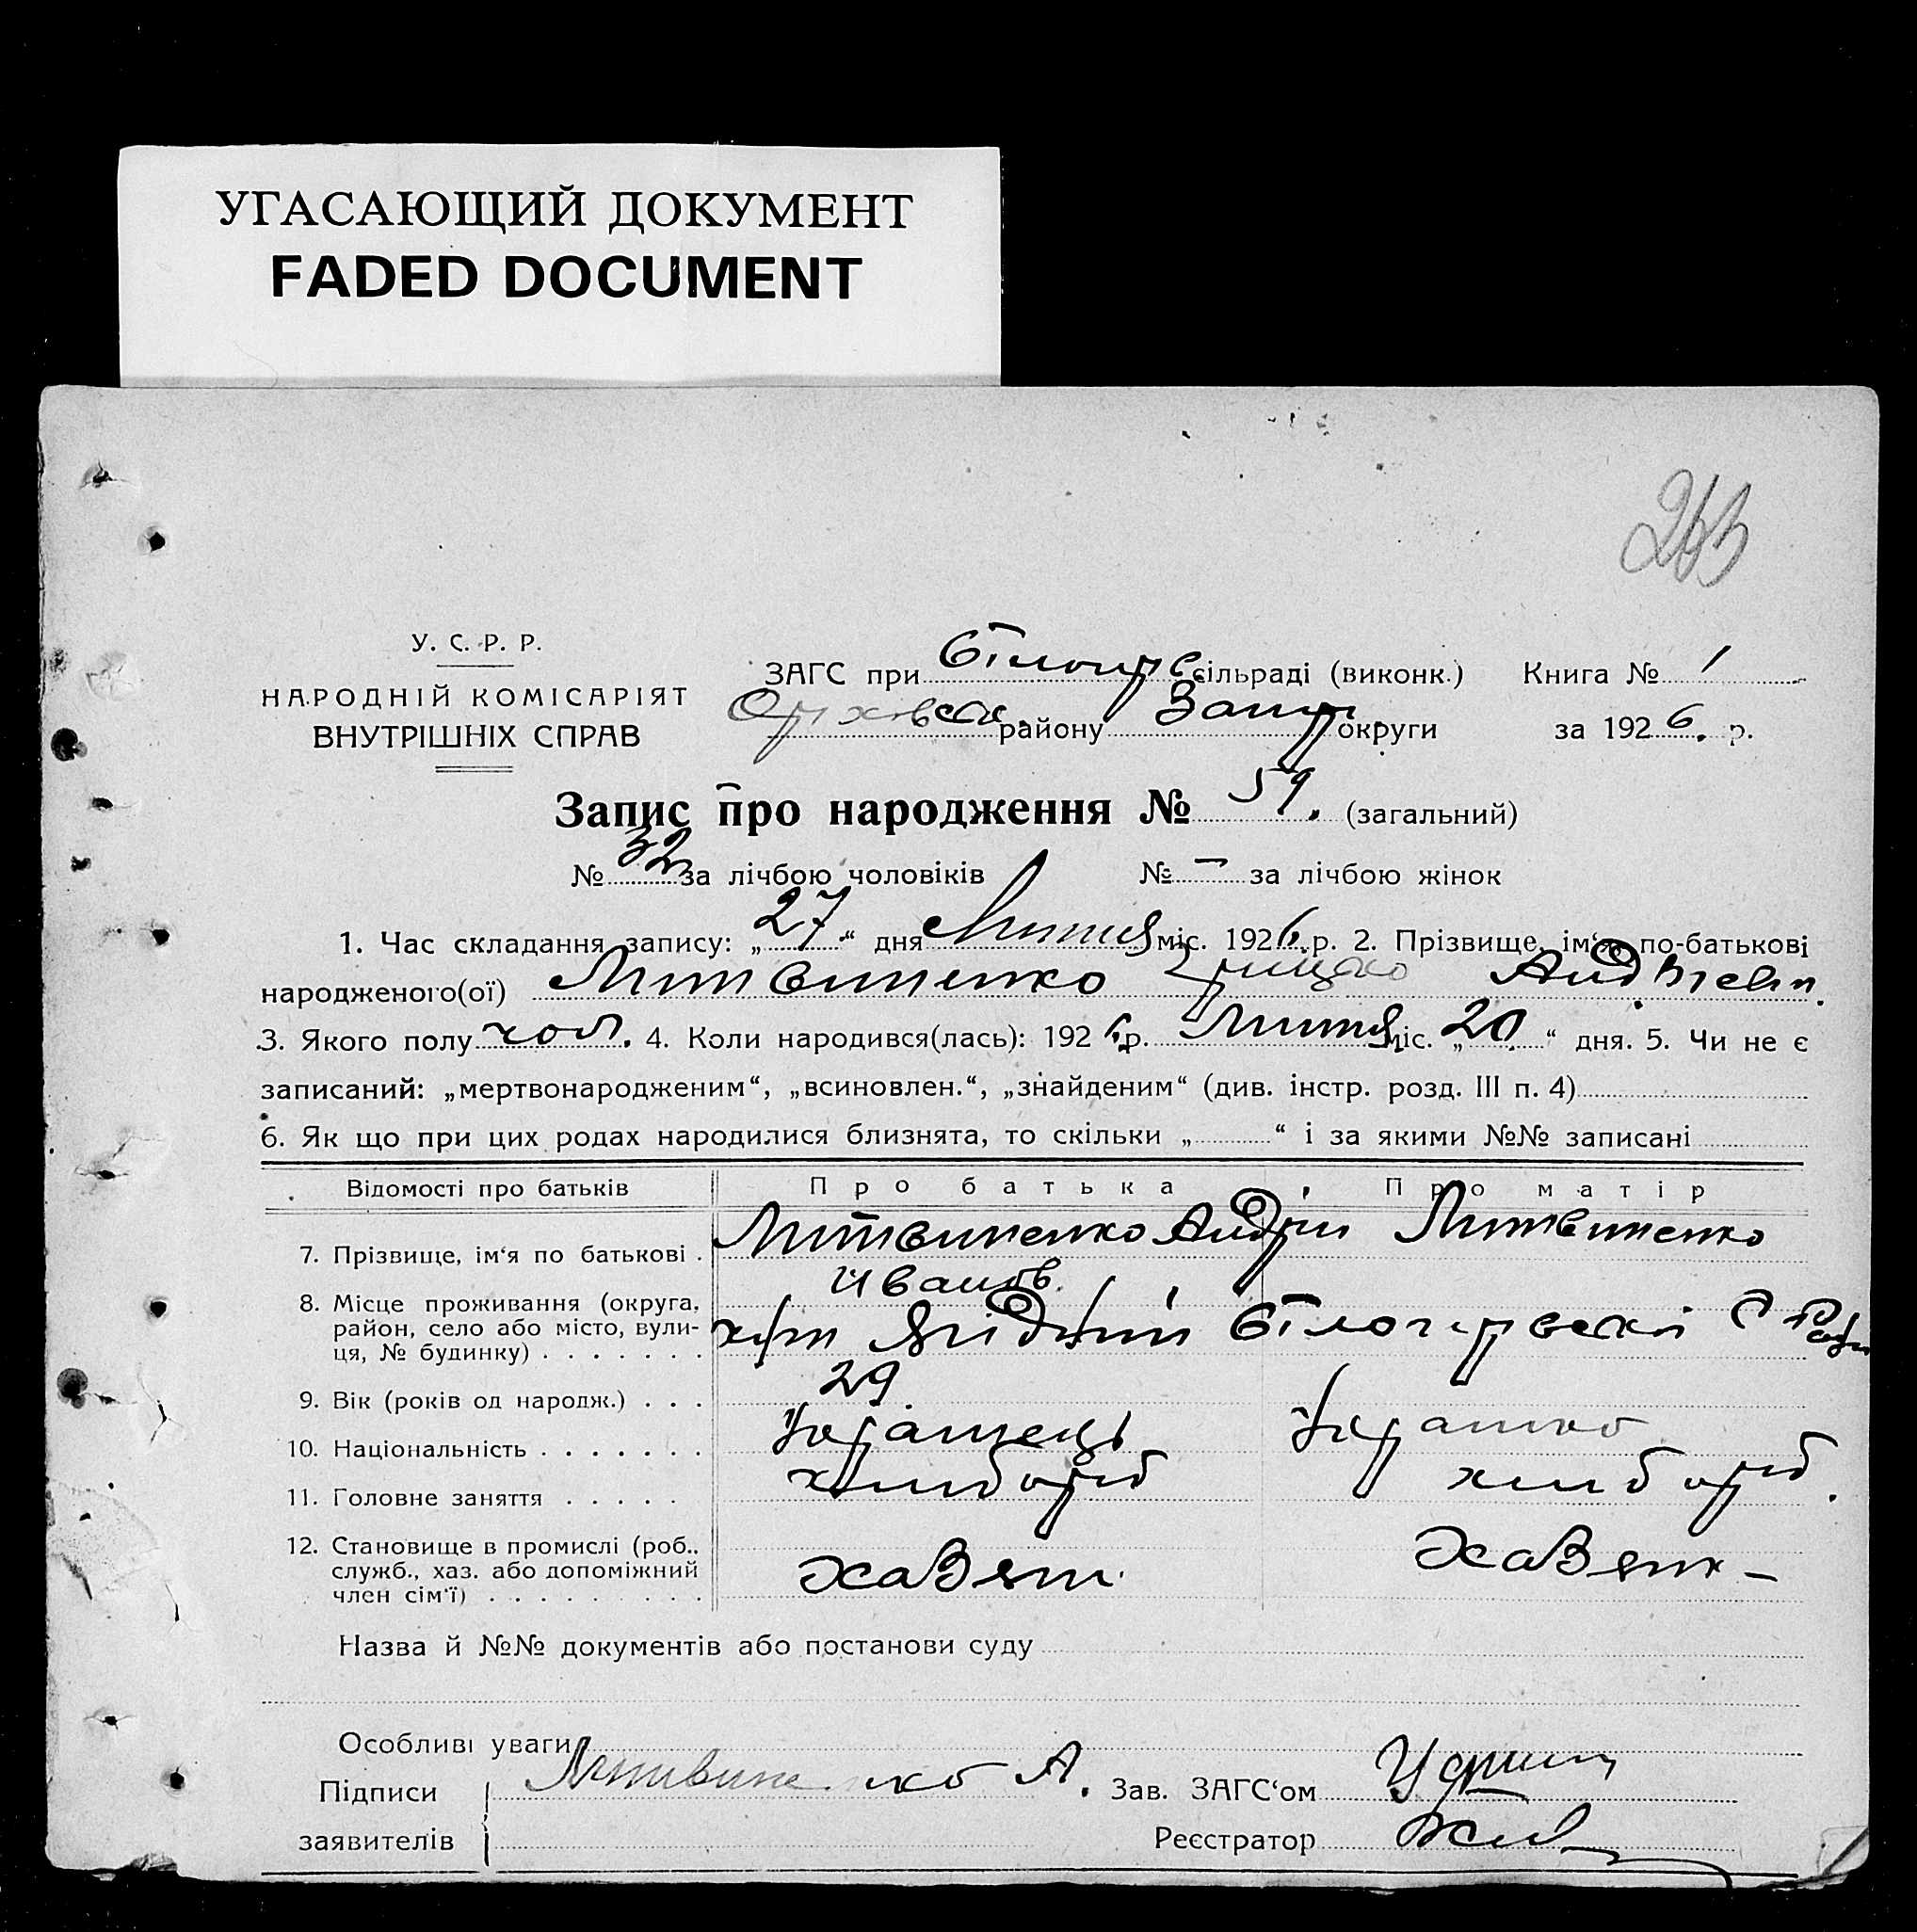 УГАСАЮЩИЙ ДОКУМЕНТ
FADED DOCUMENT
У. С. Р. Р.
НАРОДНІЙ КОМІСАРІЯТ
ВНУТРІШНІХ СПРАВ
ЗАГС при сільраді (виконк.) Книга № 1
району Запор округи за 1926 р.
Запис про народження № 59. (загальний)
№ 32 за лічбою чоловіків № – за лічбою жінок
1. Час складання запису: „27“ дня Липня міс. 1926 р. 2. Прізвище, ім‘я, по-батькові
народженого(ої) Литвиненко Грицько
3. Якого полу чол. 4. Коли народився(лась): 1926 р. Липня міс. „20“ дня. 5. Чи не є
записаний: „мертвонародженим“, „всиновлен.“, „знайденим“ (див. інстр. розд. III п. 4)
6. Як що при цих родах народилися близнята, то скільки „ “ і за якими №№ записані
Відомості про батьків Про батька Про матір
7. Прізвище, ім‘я по батькові . Литвиненко Андрій Литвиненко
Иванов.
8. Місце проживання (округа, район, село або місто, вули-ця, № будинку) . . . . . . . хут Білогірвскої С Ради
9. Вік (років од народж.) . . . 29
10. Національність . . . . . . . Українець Українка
11. Головне заняття . . . . . хлібороб хлібороб.
12. Становище в промислі (роб., служб., хаз. або допоміжний член сім‘ї) . . . . . . . . . хаВят. хаВятк –
Назва й №№ документів або постанови суду
Особливі уваги
Підписи Литвиненко А. Зав. ЗАГС‘ом
заявителів Реєстратор